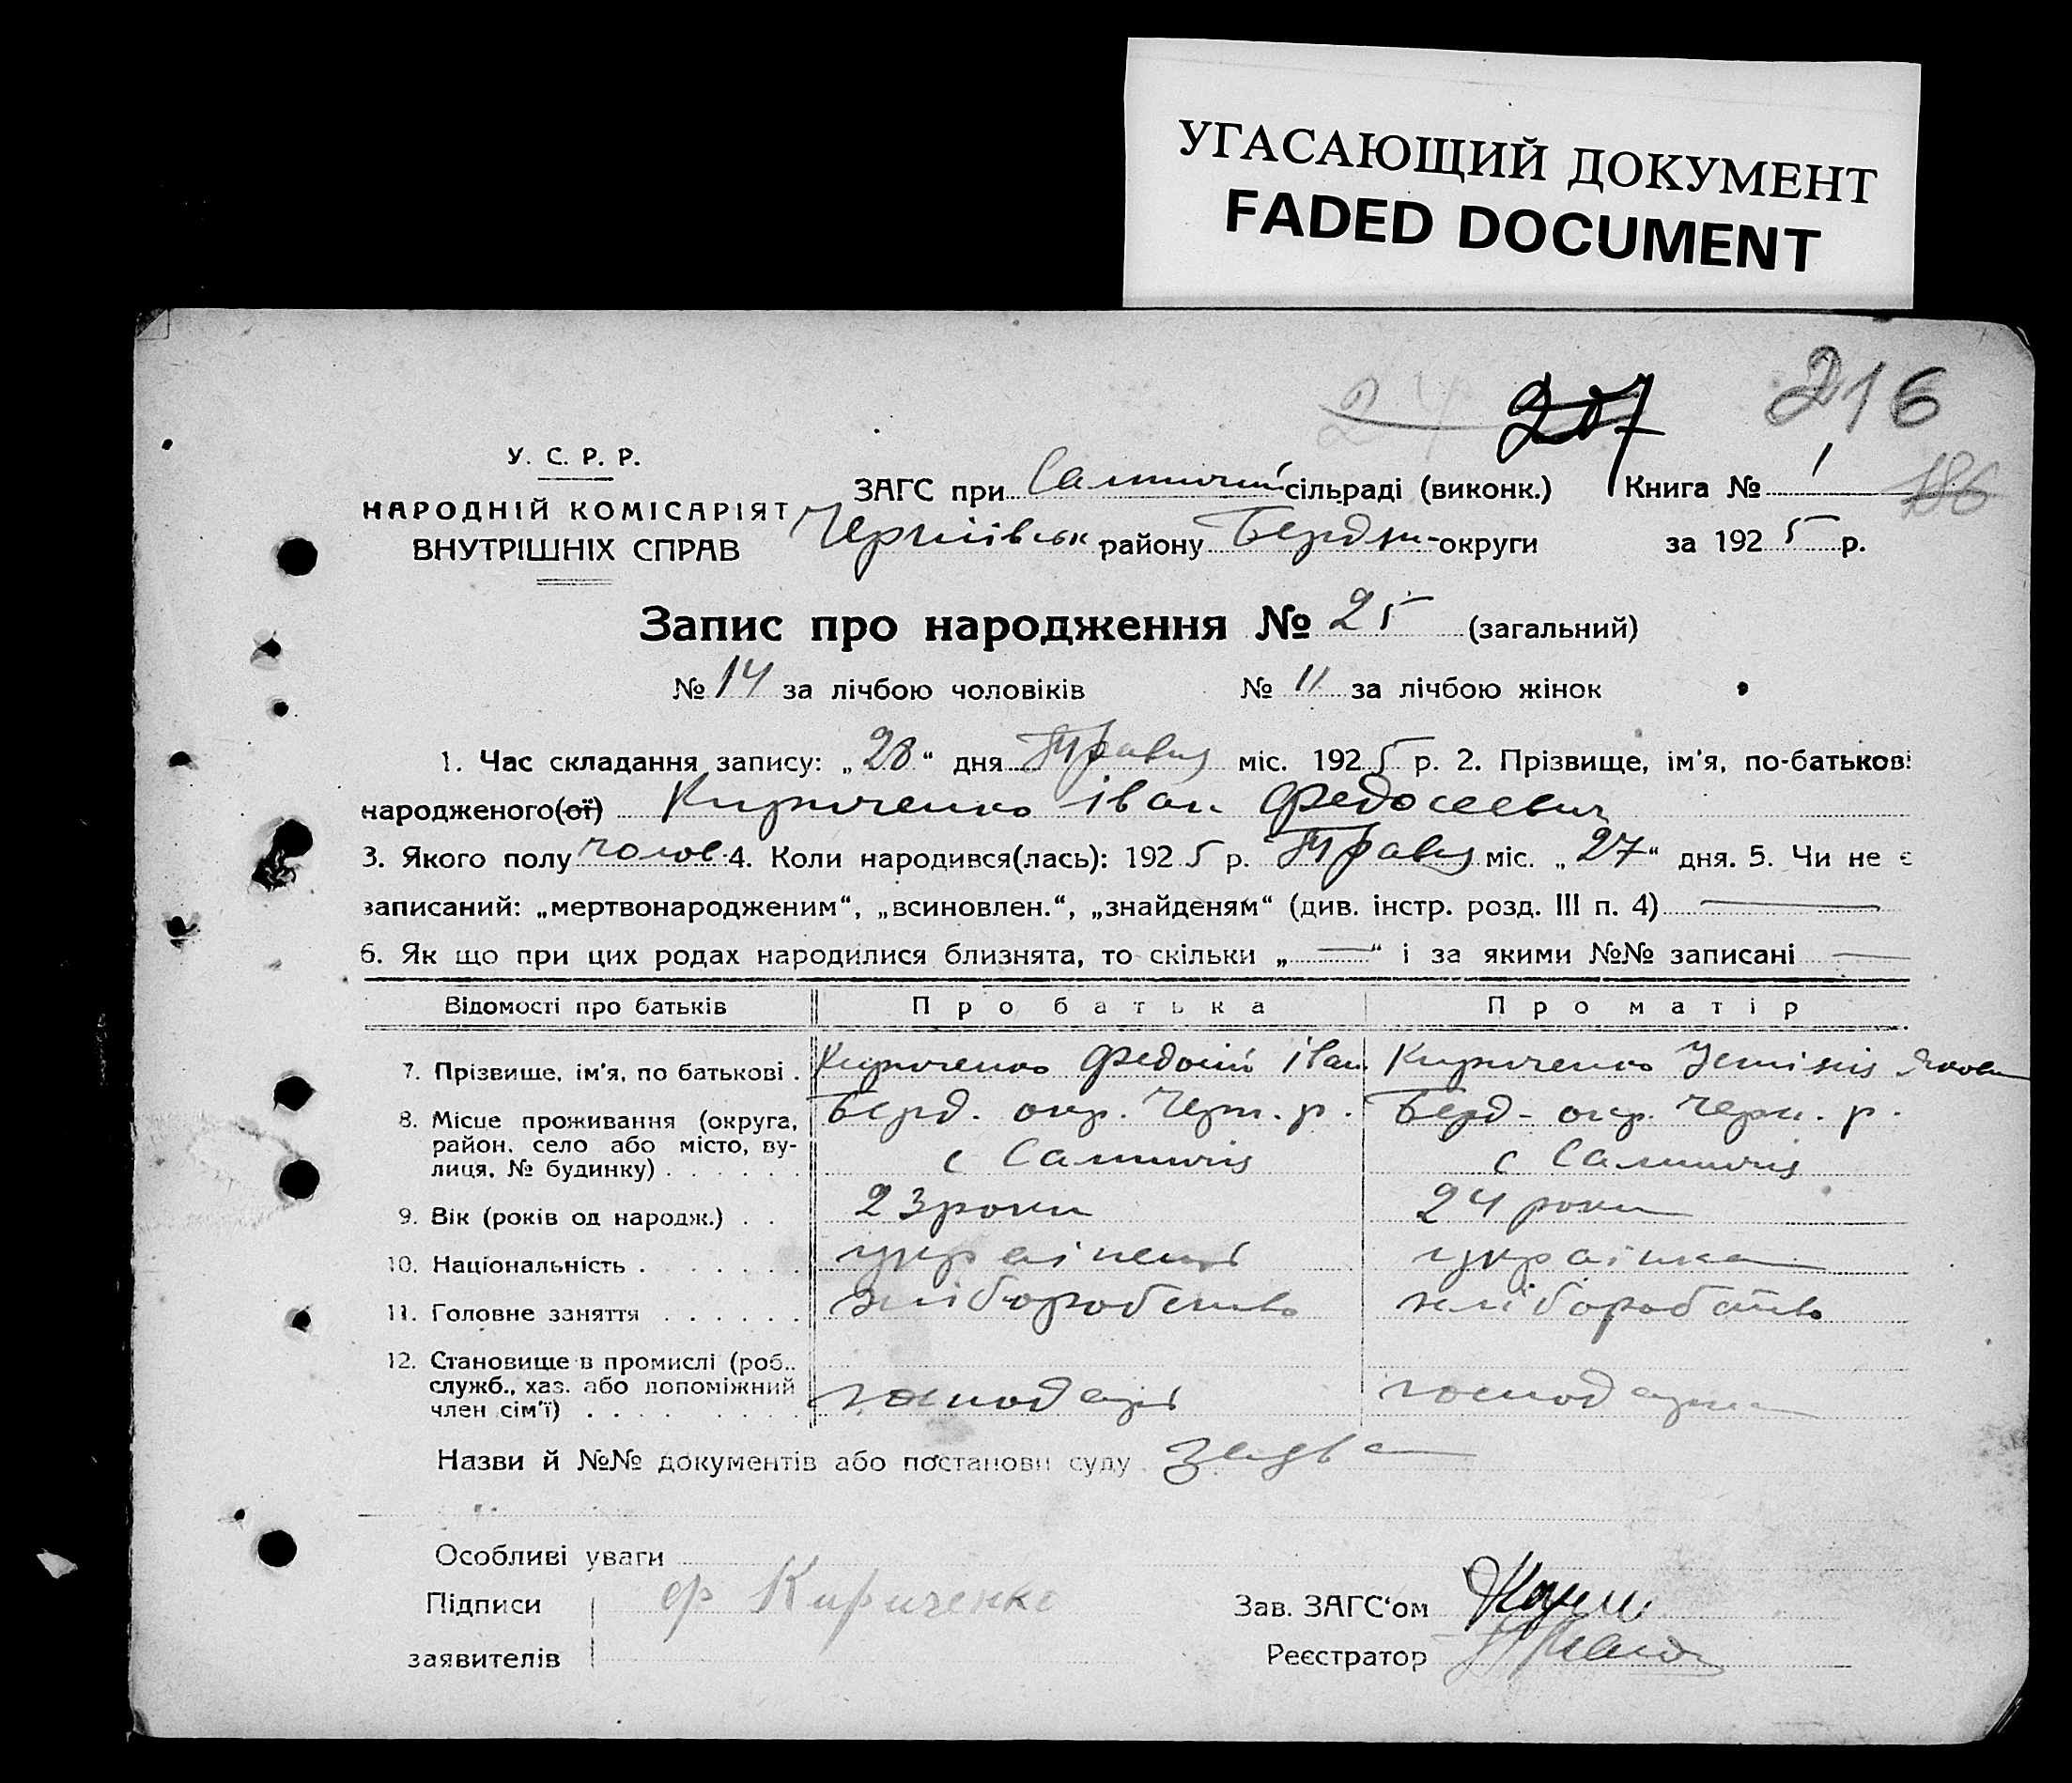 УГАСАЮЩИЙ ДОКУМЕНТ
FADED DOCUMENT
24 207 216
У. С. Р. Р.
НАРОДНІЙ КОМІСАРІЯТ
ВНУТРІШНІХ СПРАВ
ЗАГС при сільраді (виконк.) Книга № 1 186
району округи за 1925 р.
Запис про народження № 25 (загальний)
№ 14 за лічбою чоловіків № 11 за лічбою жінок
1. Час складання запису: „28“ дня Травня міс. 1925 р. 2. Прізвище, ім'я, по-батькові
народженого(ої) Кириченко іван Федосеевич
3. Якого полу чолов. 4. Коли народився(лась): 1925 р. Травня міс. „27“ дня. 5. Чи не є
записаний: „мертвонародженим“, „всиновлен.“, „знайденям“ (див. інстр. розд. III п. 4) —
6. Як що при цих родах народилися близнята, то скільки „—“ і за якими №№ записані —
Відомості про батьків Про батька Про матір
7. Прізвище, ім'я, по батькові . Кириченко Федосій іван. Кириченко Устінія Яковл
8. Місце проживання (округа, район, село або місто, вулиця, № будинку) . . . . . . Берд. окр. Черн. р. Берд- окр. Черн. р.
с с
9. Вік (років од народж.) . . 23 роки 24 роки
10. Національність . . . . . . . українець українка
11. Головне заняття . . . . . . хліборобство хліборобство
12. Становище в промислі (роб., служб., хаз. або допоміжний член сім'ї) . . . . . . . . . господарь господарка
Назви й №№ документів або постанови суду заява
Особливі уваги
Підписи ф Кириченко Зав. ЗАГС‘ом
заявителів Реєстратор